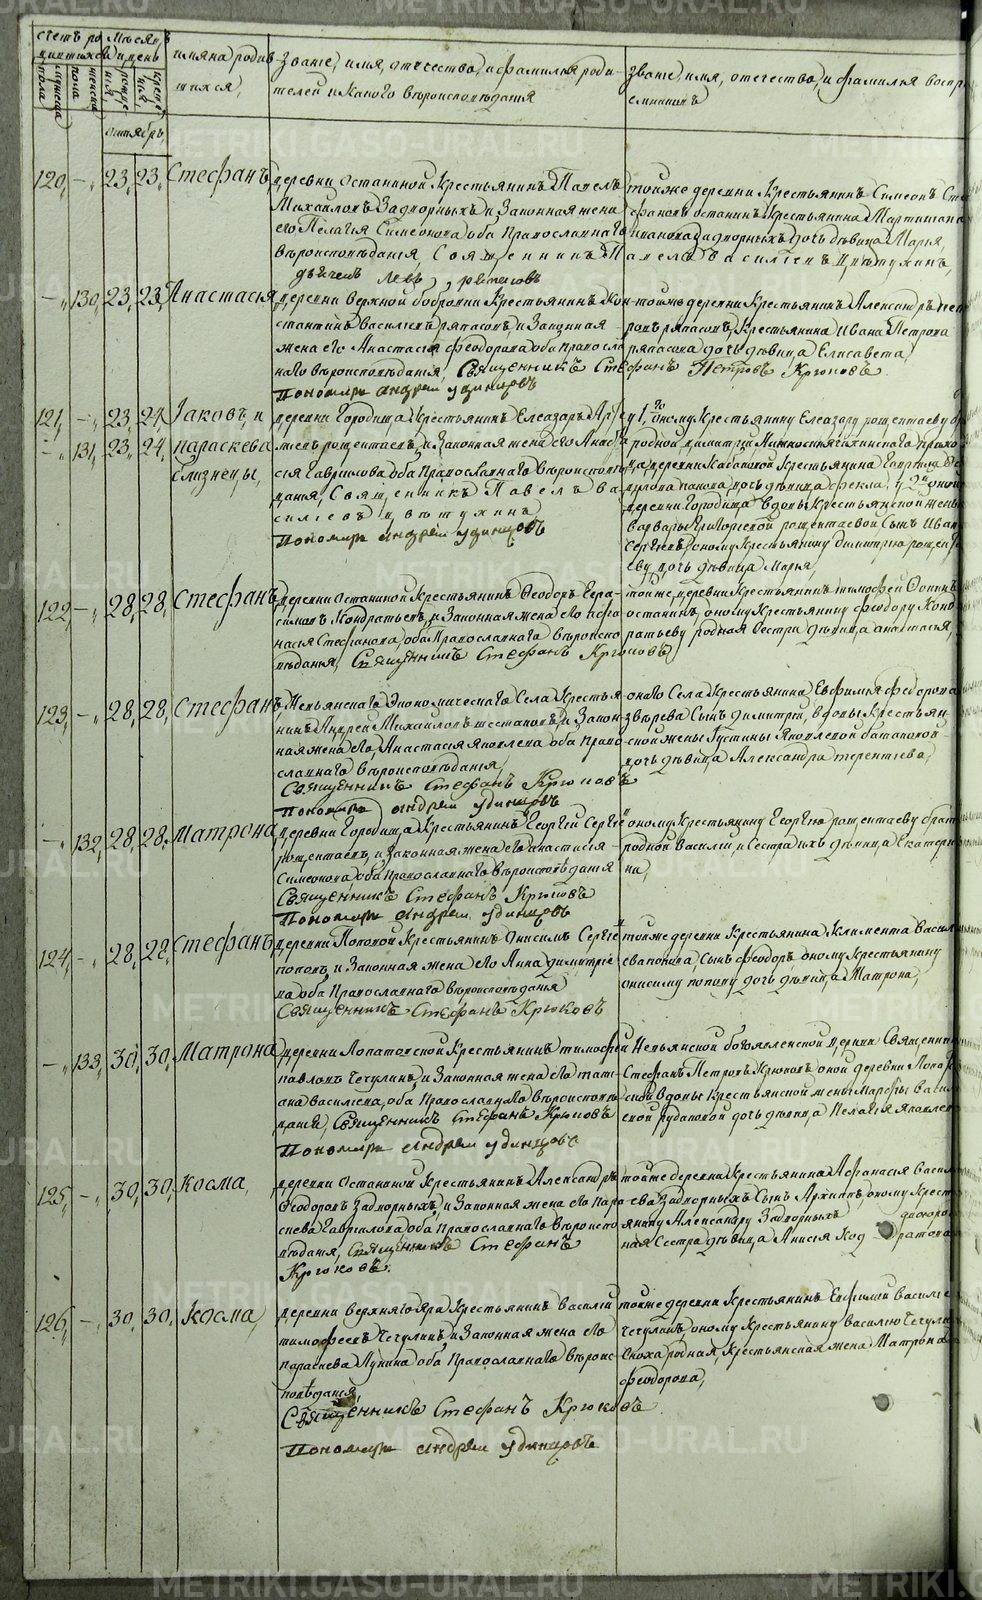 счетъ ро мѣсяцъ
дившихся и день
имяна родив
шихся,
званіе, имя, отчество, и фамилія роди-
телей и какого вѣроисповѣданія
званіе, имя, отчество, и фамилія воспр
октябрь
120, 23, 23, Стефанъ
деревни Останиной Крестьянинъ Павелъ
Михайловъ Задворныхъ и Законная жена
его Пелагія Симеонова оба Православнаго
вѣроисповѣданія, Священникъ П
авелъ Васильевъ Цвѣтухинъ,
тойже деревни Крестьянинъ Симеонъ Сте
фановъ останинъ Крестьянина
Задворныхъ дочь дѣвица Марья,
130, 23, 23, Анастасія
деревни верхной бобровки Крестьянинъ Кон
стантинъ Васильевъ ряпасовъ и Законная
жена его Анастасія Феодорова оба правосла
наго вѣроисповѣданія, Священникъ Стефанъ Петровъ Крюковъ
Пономарь Андрей Удинцовъ
тоижъ деревни Крестьянинъ Александръ пет
ровъ ряпасовъ, Крестьянина Ивана Петрова
ряпасова дочь дѣвица Елисавета,
121, 23, 24, Іаковъ, и
131, 23, 24, параскева
близнецы,
деревни Городища Крестьянинъ Елеазаръ
рощектаевъ и Законная жена его Анаста
сія Гаврилова оба Православнаго вѣроисповѣ
данія, Священникъ Павелъ Ва
сильевъ Цвѣтухинъ
Пономарь Андрей Удинцовъ
у 1го оному Крестьянину Елеазару рощектаеву
родной димитрій
деревни Кабаковой Крестьянина Гаврила
дочь дѣвица фекла, у 2й оной
деревни Городища вдовы Крестьянской жены
варвары Григорьевой рощектаевой Сынъ Иван
Сергіевъ, оному Крестьянину димитрію рощекта
еву дочь дѣвица Марья,
122, 28, 28, Стефанъ,
деревни Останиной Крестьянинъ Феодоръ Гера
симовъ Кондратьевъ, и Законная жена его
Стефанова, оба Православнаго вѣроиспо
вѣданія, Священникъ Стефанъ Крюковъ
тойже деревни Крестьянинъ тимофей
останинъ, оному Крестьянину феодору Конд
ратьеву родная Сестра дѣвица анастасія,
123, 28, 28, Стефанъ
Невьянскаго Экономическаго Села Крестья
нинъ Андрей Михайловъ шестаковъ, и Закон
ная жена его, Анастасія Яковлева оба Право
славнаго вѣроисповѣданія,
Священникъ Стефанъ Крюковъ
Пономарь Андрей Удинцовъ
онаго Села Крестьянина Евфимія феодорова
звѣрева Сынъ Димитрій, вдовы Крестьян
ской жены Іустины Яковлевой батаковой
дочь дѣвица Александра терентьева,
132, 28, 28, Матрона,
деревни Городища Крестьянинъ Георгій Сергіе
рощектаевъ, и Законная жена его анастасія
Симеонова, оба Православнаго вѣроисповѣданія
Священникъ Стефанъ Крюковъ
Пономарь Андрей Удинцовъ
оному Крестьянину Георгію рощектаеву братъ
родной Василій и Сестра ихъ дѣвица Екатери
на,
124, 28, 28, Стефанъ,
деревни Поповой Крестьянинъ Онисимъ Сергіе
поповъ, и Законная жена его Анна Димитріе
ва оба Православнаго вѣроисповѣданія
Священникъ Стефанъ Крюковъ
тойже деревни Крестьянина Климента Васил
ева попова, Сынъ феодоръ, оному Крестьянину
онисиму попову дочь дѣвица Матрона,
133, 30, 30, Матрона,
деревни Лопатовской Крестьянинъ тимофей
павловъ Чечулинъ, и Законная жена его тать
яна василіева, оба Православнаго вѣроисповѣ
данія, Священникъ Стефанъ Крюковъ
Пономарь Андрей Удинцовъ
Невьянской богоявленской Церкви Священник
Стефанъ Петровъ Крюковъ, оной деревни Лопа
ской вдовы Крестьянской жены Марфы Васил
евой рудаковой дочь дѣвица, Пелагія Яковлев
125, 30, 30, Косма,
деревни Останиной Крестьянинъ Александръ
Феодоровъ Задворныхъ, и Законная жена его пара
скева Гаврилова, оба Православнаго вѣроиспо
вѣданія, Священникъ Стефанъ
Крюковъ.
тойже деревни Крестьянина Афанасія Васил
ева Задворныхъ Сынъ Архипъ, оному Крест
янину Александру Задворныхъ двоюрод
ная Сестра дѣвица Анисія
126, 30, 30, Косма,
деревни верхняго Яра Крестьянинъ Василій
тимофеевъ Чечулинъ, и Законная жена его
параскева Лукина оба Православнаго вѣроис
повѣданія,
Священникъ Стефанъ Крюковъ
Пономарь Андрей Удинцовъ
тойже деревни Крестьянинъ Евфимій Василіе
Чечулинъ, оному Крестьянину Василію Чечули
Сноха родная, Крестьянская жена Матрона
феодорова,
METRIKI.GASO-URAL.RU